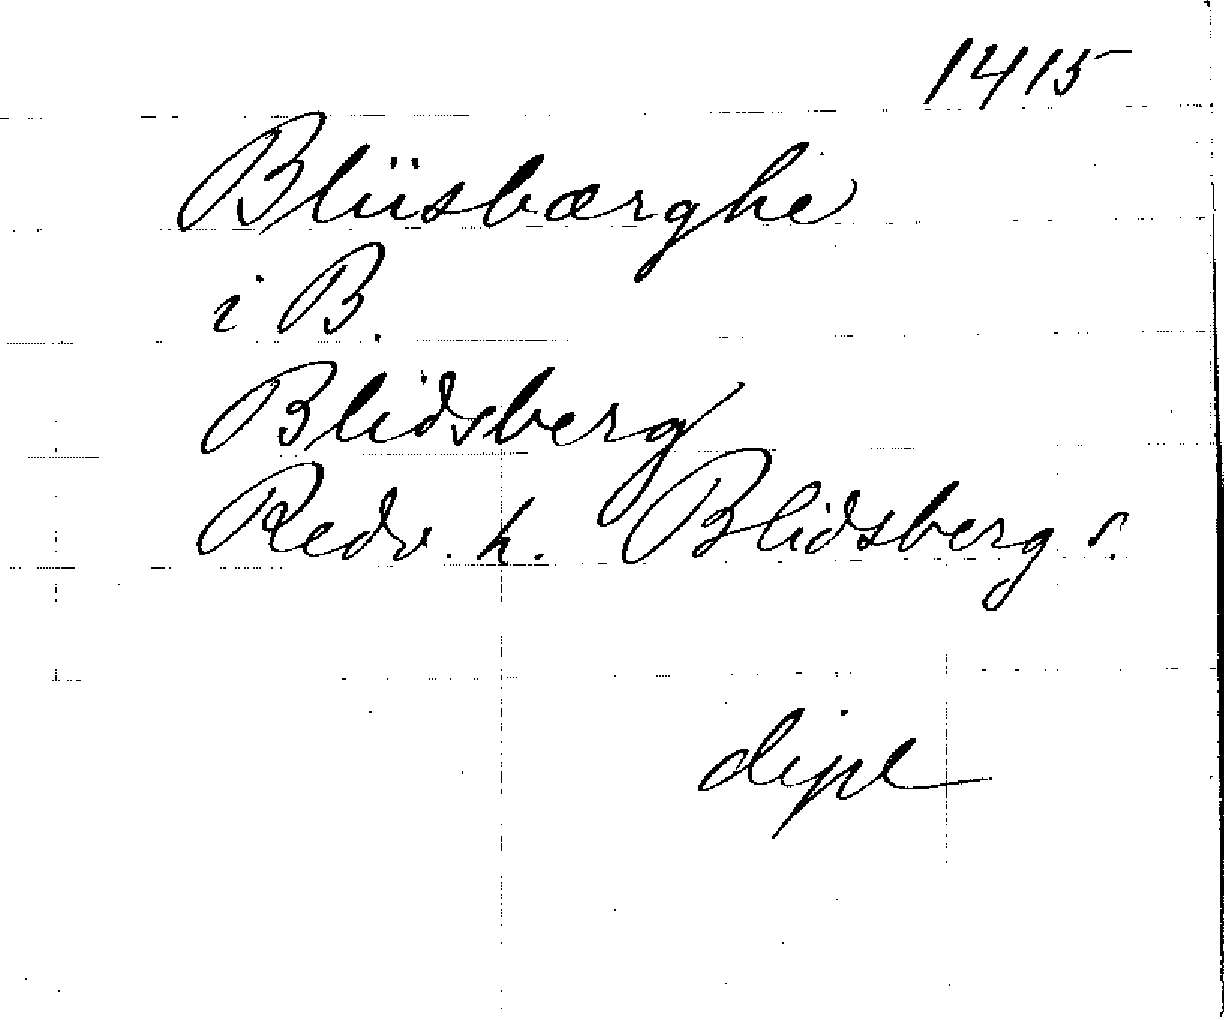 1415
Bliisbærghe
i B.
Blidsberg
Redv. h. Blidsberg s.
dipl